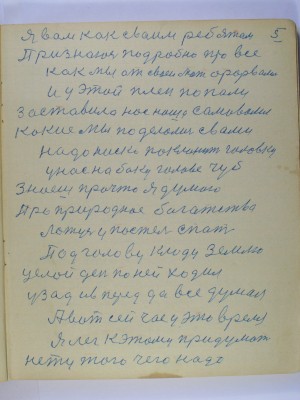 Я вам как сваим ребятам 5
Признаюся подробно про все
как мы от своих
и у этой плен попали
Заставила нас наше самоволия
Какие мы с вами
надо
у нас на боку голове чуб
Знаеш про что я думаю
Про природное богатства
Ложуся у постел спат
Под голову кладу Землю
целой ден по ней ходил
у зад и в перед да все думал
А вот сей час у это время
Я лег к этому придумат
нету того чего надо